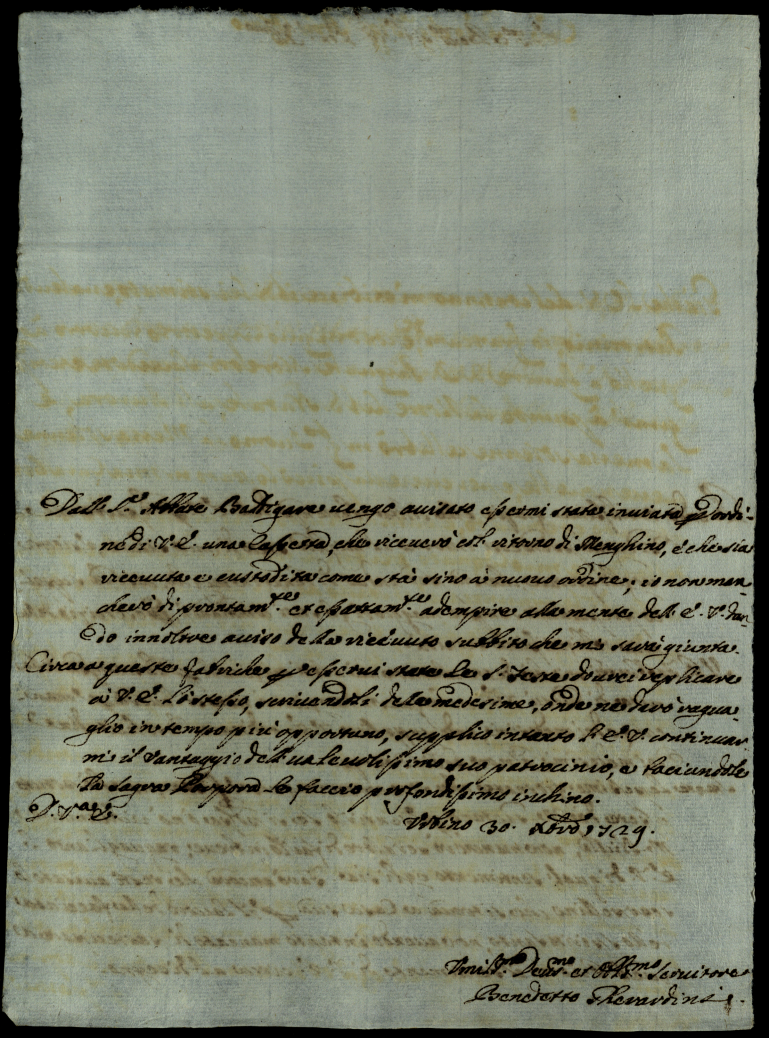 Dall S.r Abbate Bastigare vengo avisato essermi stata inviata p ordi-
ne di V. E. una Cassetta, che riceverò col ritorno di Menghino, e che sia
ricevuta e custodita come stà sino à nuovo ordine; io non man-
cherò di prontam.te et esattam.te adempire alla mente dell' E. V. dan-
do innoltre aviso della riceuuta subbito che mi sarà giunta.
Circa a queste fabriche p esserui state le S. Feste dourei replicare
à V. E. lo stesso, scrivendoli delle medesime, onde ne darò ragua-
glio in tempo più opportuno, supplico intanto l' E. V. continuar-
mi il vantaggio dell ualeuolissimo suo patrocinio, e baciandole
la Sagra Porpora le faccio profondissimo inchino.
D. V.a E.
Urbino 30. Xbre 1729.
Umiliss.mo Deuot.mo et Obblig.mo Servitore
Benedetto Gherardini